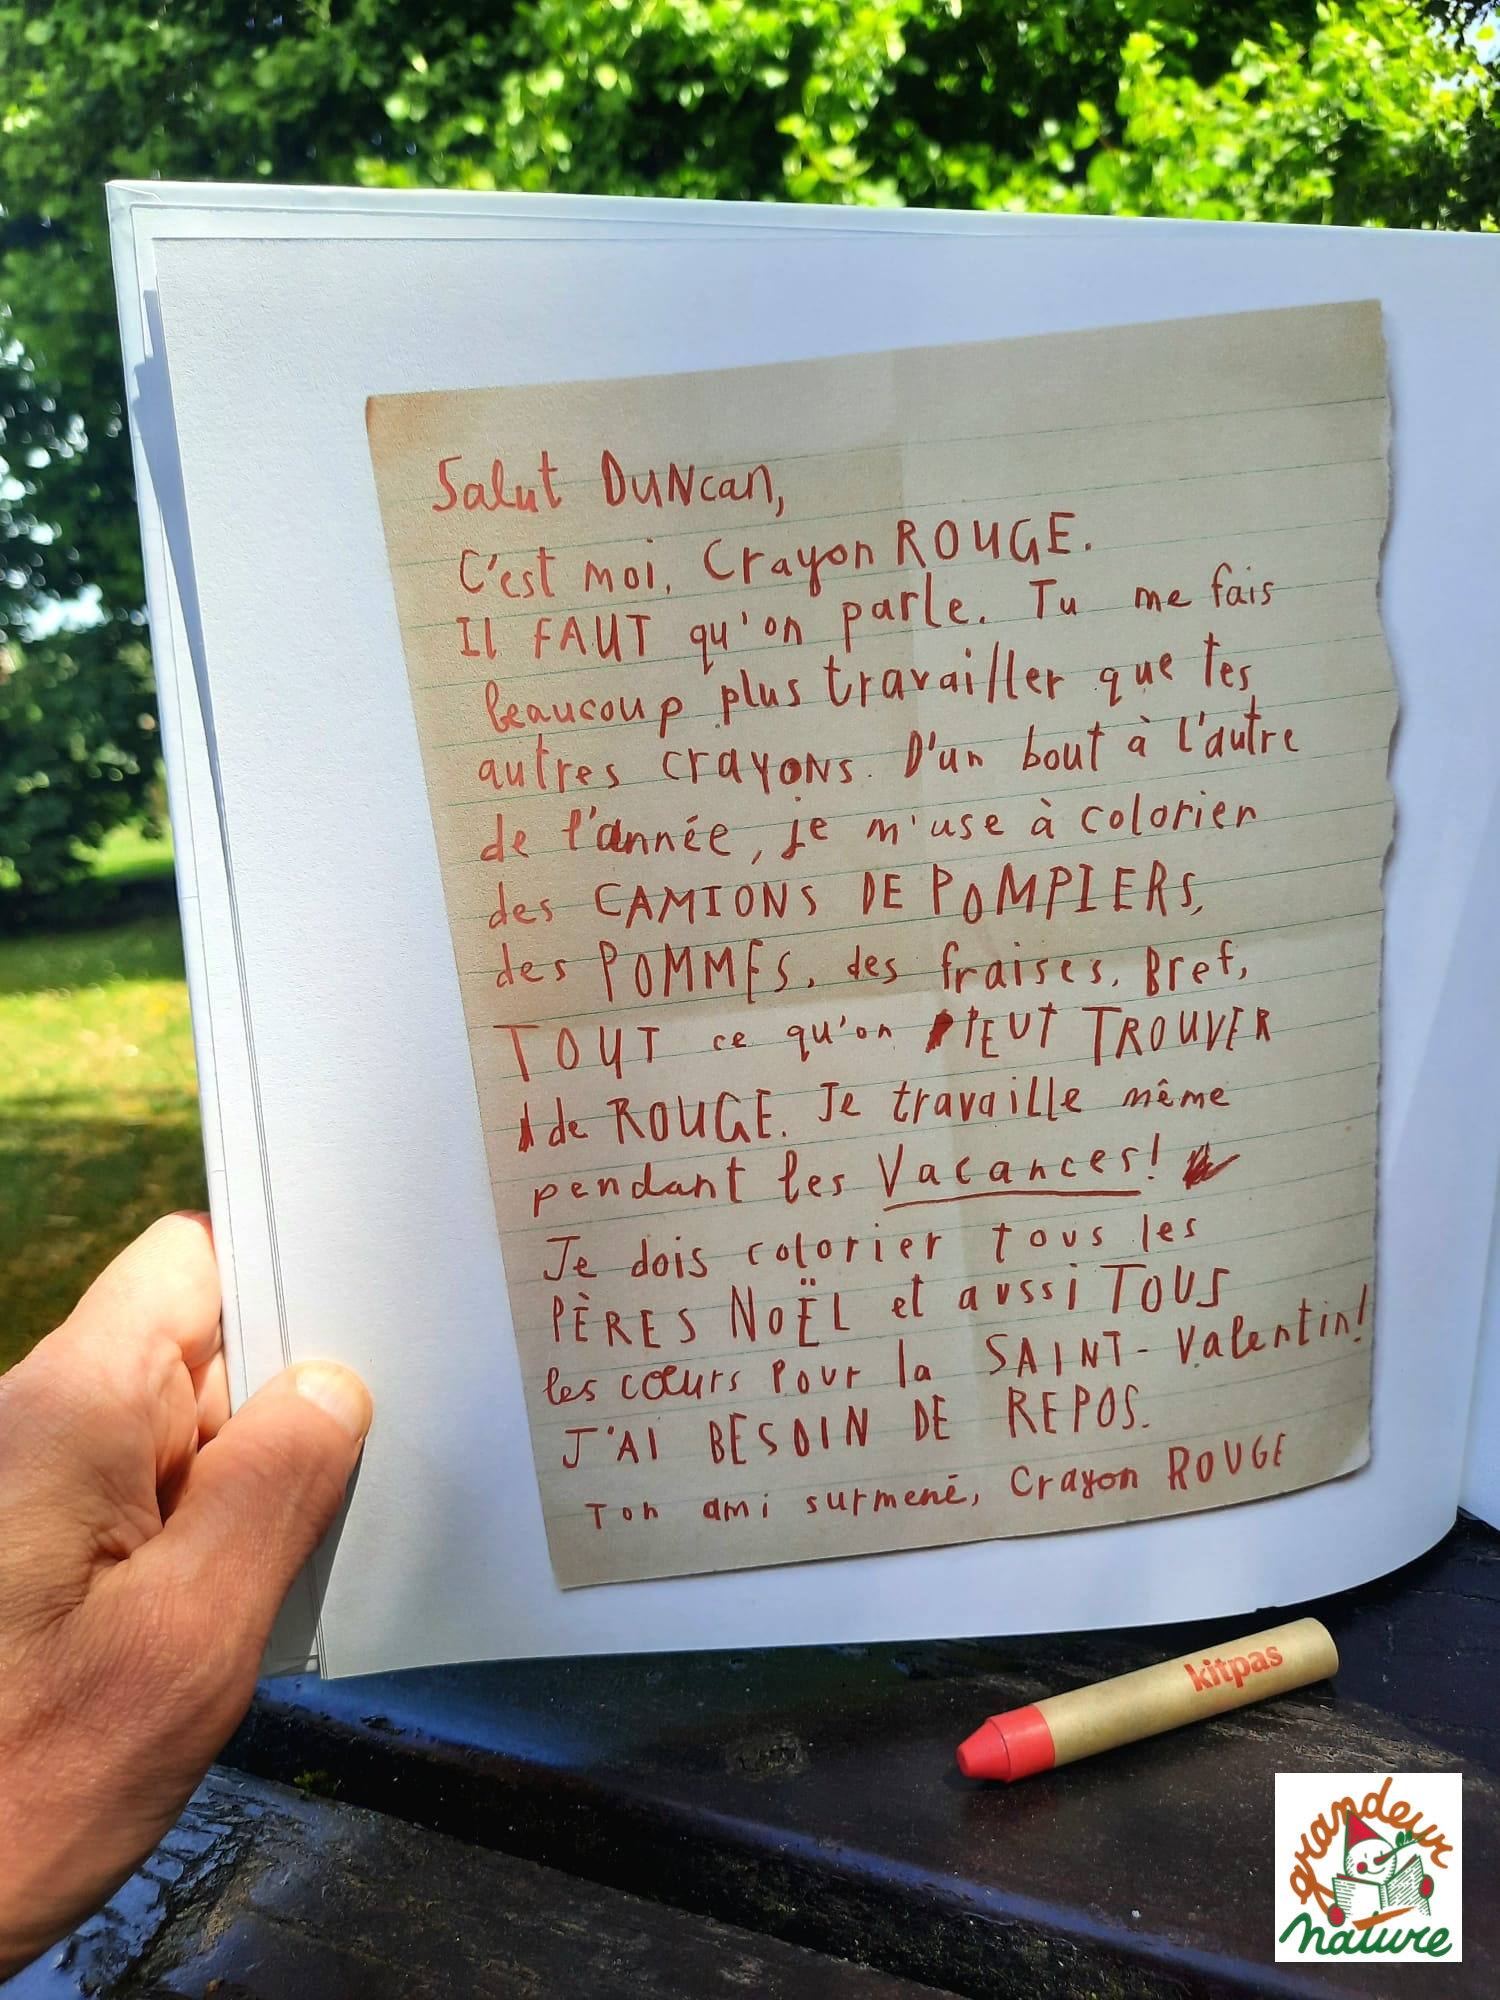 Salut DUNcan,
C'est moi, Crayon ROUGE.
Il FAUT qu'on parle. Tu me fais
beaucoup plus travailler que tes
autres crayons. D'un bout à l'autre
de l'année, je m'use à colorier
des CAMIONS DE POMPIERS,
des POMMES, des fraises. Bref,
TOUT ce qu'on PEUT TROUVER
de ROUGE. Je travaille même
pendant les Vacances!
Je dois colorier tous les
PÈRES NOËL et aussi TOUS
les cœurs pour la SAINT-Valentin!
J'AI BESOIN DE REPOS.
Ton ami surmené, Crayon ROUGE
kitpas
grandeur
nature